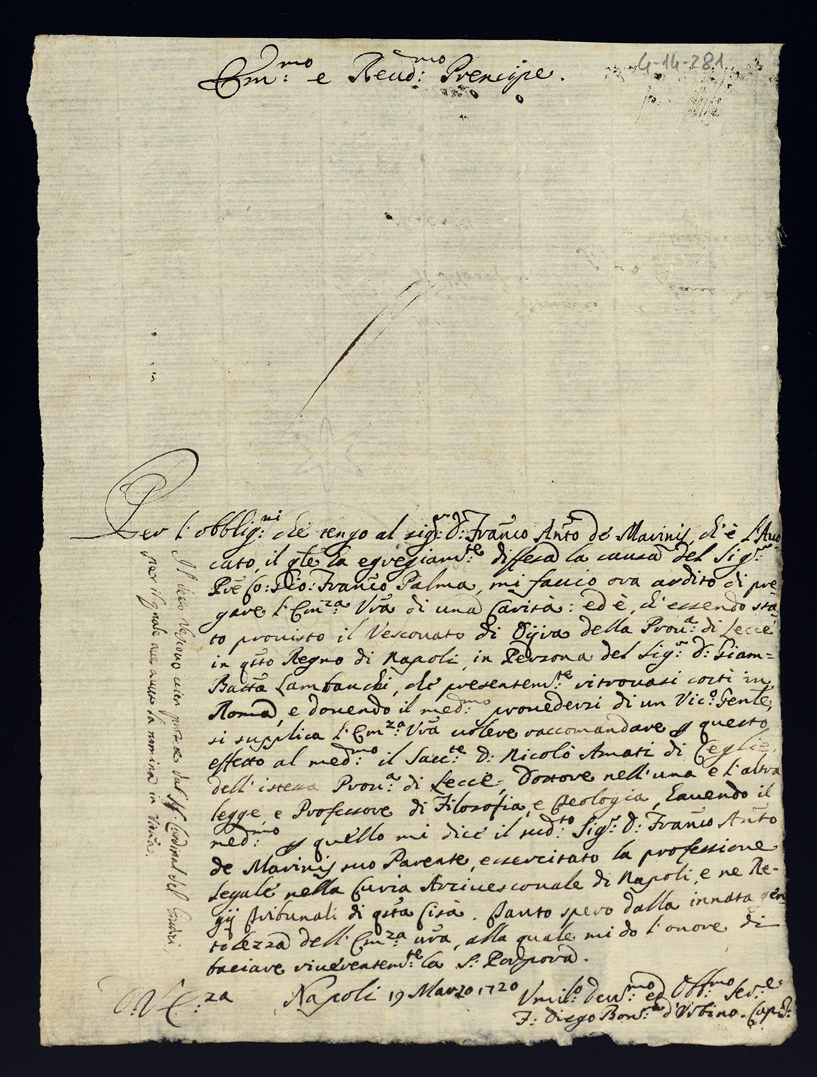 4-14-281
Em:mo e Reud:mo Prencipe.
Per l'obblig:ni che tengo al sig:r D: Franco Anto de Marinis, ch'è l'Auo
cato, il qle ha egregiam:te diffesa la causa del Sig:r
Pre Franco Palma, mi faccio ora ardito di pre
gare l'Em:za Vra di una Carità: ed è, ch'essendo sta
to prouisto il Vescouato di della Prou:a di Lecce
in qsto Regno di Napoli, in Persona del Sig:r D: Giam-
Batta Lambanchi, che presentem:te ritrouasi costì in
Roma, e douendo il med:mo prouedersi di un Vic:o Gente,
si supplica l'Em:za Vra uolere raccomandare questo
effetto al med:mo il Sacc:te D: Nicolò Amati di Ceglie
dell'istessa Prou:a di Lecce, Dottore nell'una e l'altra
legge, e Professore di Filosofia, e Teologia, hauendo il
med:mo quello mi dice il sud:to Sig:r D: Franco Anto
de Marinis suo Parente, essercitato la professione
legale nella Curia Arciuescouale di Napoli, e ne Re-
gij Tribunali di qsta Città. Tanto spero dalla innata gen
tilezza dell'Em:za ura, alla quale mi do l'onore di
baciare riuerentem:te la S: Porpora.
Napoli 19 Marzo 1720
Umil:o Deu:mo ed Obb:mo Ser:e
F: Diego d'Urbino. Cap:o
Il detto Vescouo uien dal Sr Cardinal del Giudici,
per il quale la nomina in